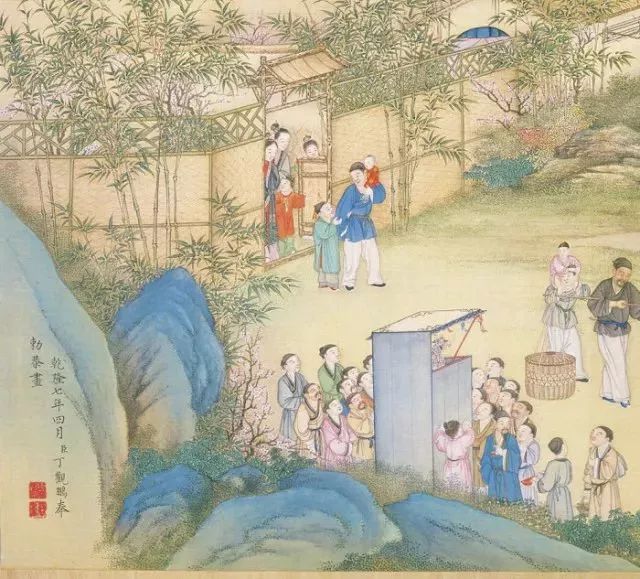 乾隆七年四月臣丁觀鵬奉
勅恭畫